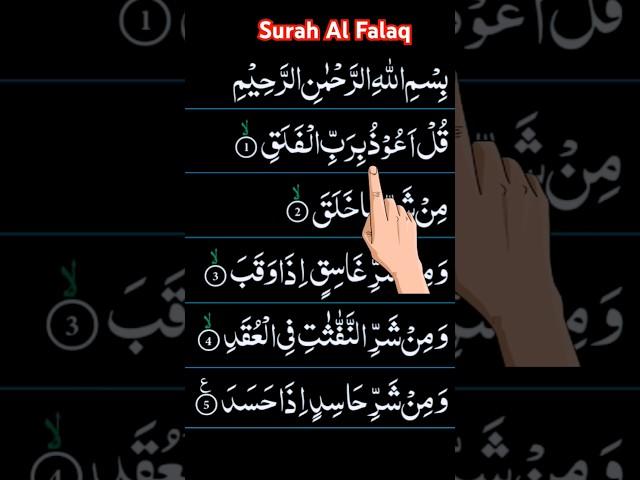 Surah Al Falaq
بِسْمِ اللّٰهِ الرَّحْمٰنِ الرَّحِيْمِ
قُلْ اَعُوْذُ بِرَبِّ الْفَلَقِ ۙ﴿1﴾
مِنْ خَلَقَ ۙ﴿2﴾
غَاسِقٍ اِذَا وَقَبَ ۙ﴿3﴾
وَمِنْ شَرِّ النَّفّٰثٰتِ فِى الْعُقَدِ ۙ﴿4﴾
وَمِنْ شَرِّ حَاسِدٍ اِذَا حَسَدَ ﴿5﴾ ع